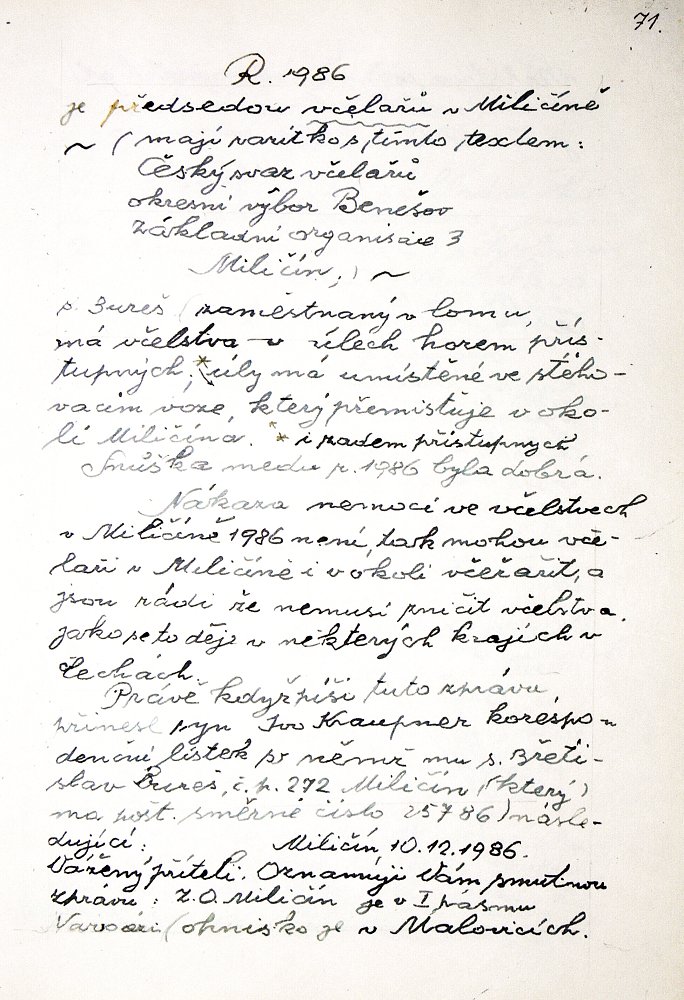 71.
R. 1986
je předsedou včelařů v Miličíně
~ (mají razítko s tímto textem:
Český svaz včelařů
okresní výbor Benešov
základní organisace 3
Miličín.) ~
s. Bureš (zaměstnaný v lomu
má včelstva v úlech horem přís-
tupných; * úly má umístěné ve stěho-
vacím voze, který přemisťuje v oko-
lí Miličína. * i zadem přístupných
Snůška medu r. 1986 byla dobrá.
Nákaza nemocí ve včelstvech
v Miličíně 1986 není, tak mohou vče-
laři v Miličíně i v okolí včelařit, a
jsou rádi že nemusí zničit včelstva,
jako se to děje v některých krajích v
Čechách.
Právě když píši tuto zprávu
přinesl syn Ivo Kraupner korespo-
denční lístek, v němž mu s. Břeti-
slav Bureš, č.p. 272 Miličín, (který
má pošt. směrné číslo 25786) násle-
dující: Miličín, 10.12.1986.
Vážený příteli. Oznamuji Vám smutnou
zprávu: Z.O. Miličín je v I pásmu
(ohnisko je v Malovicích.